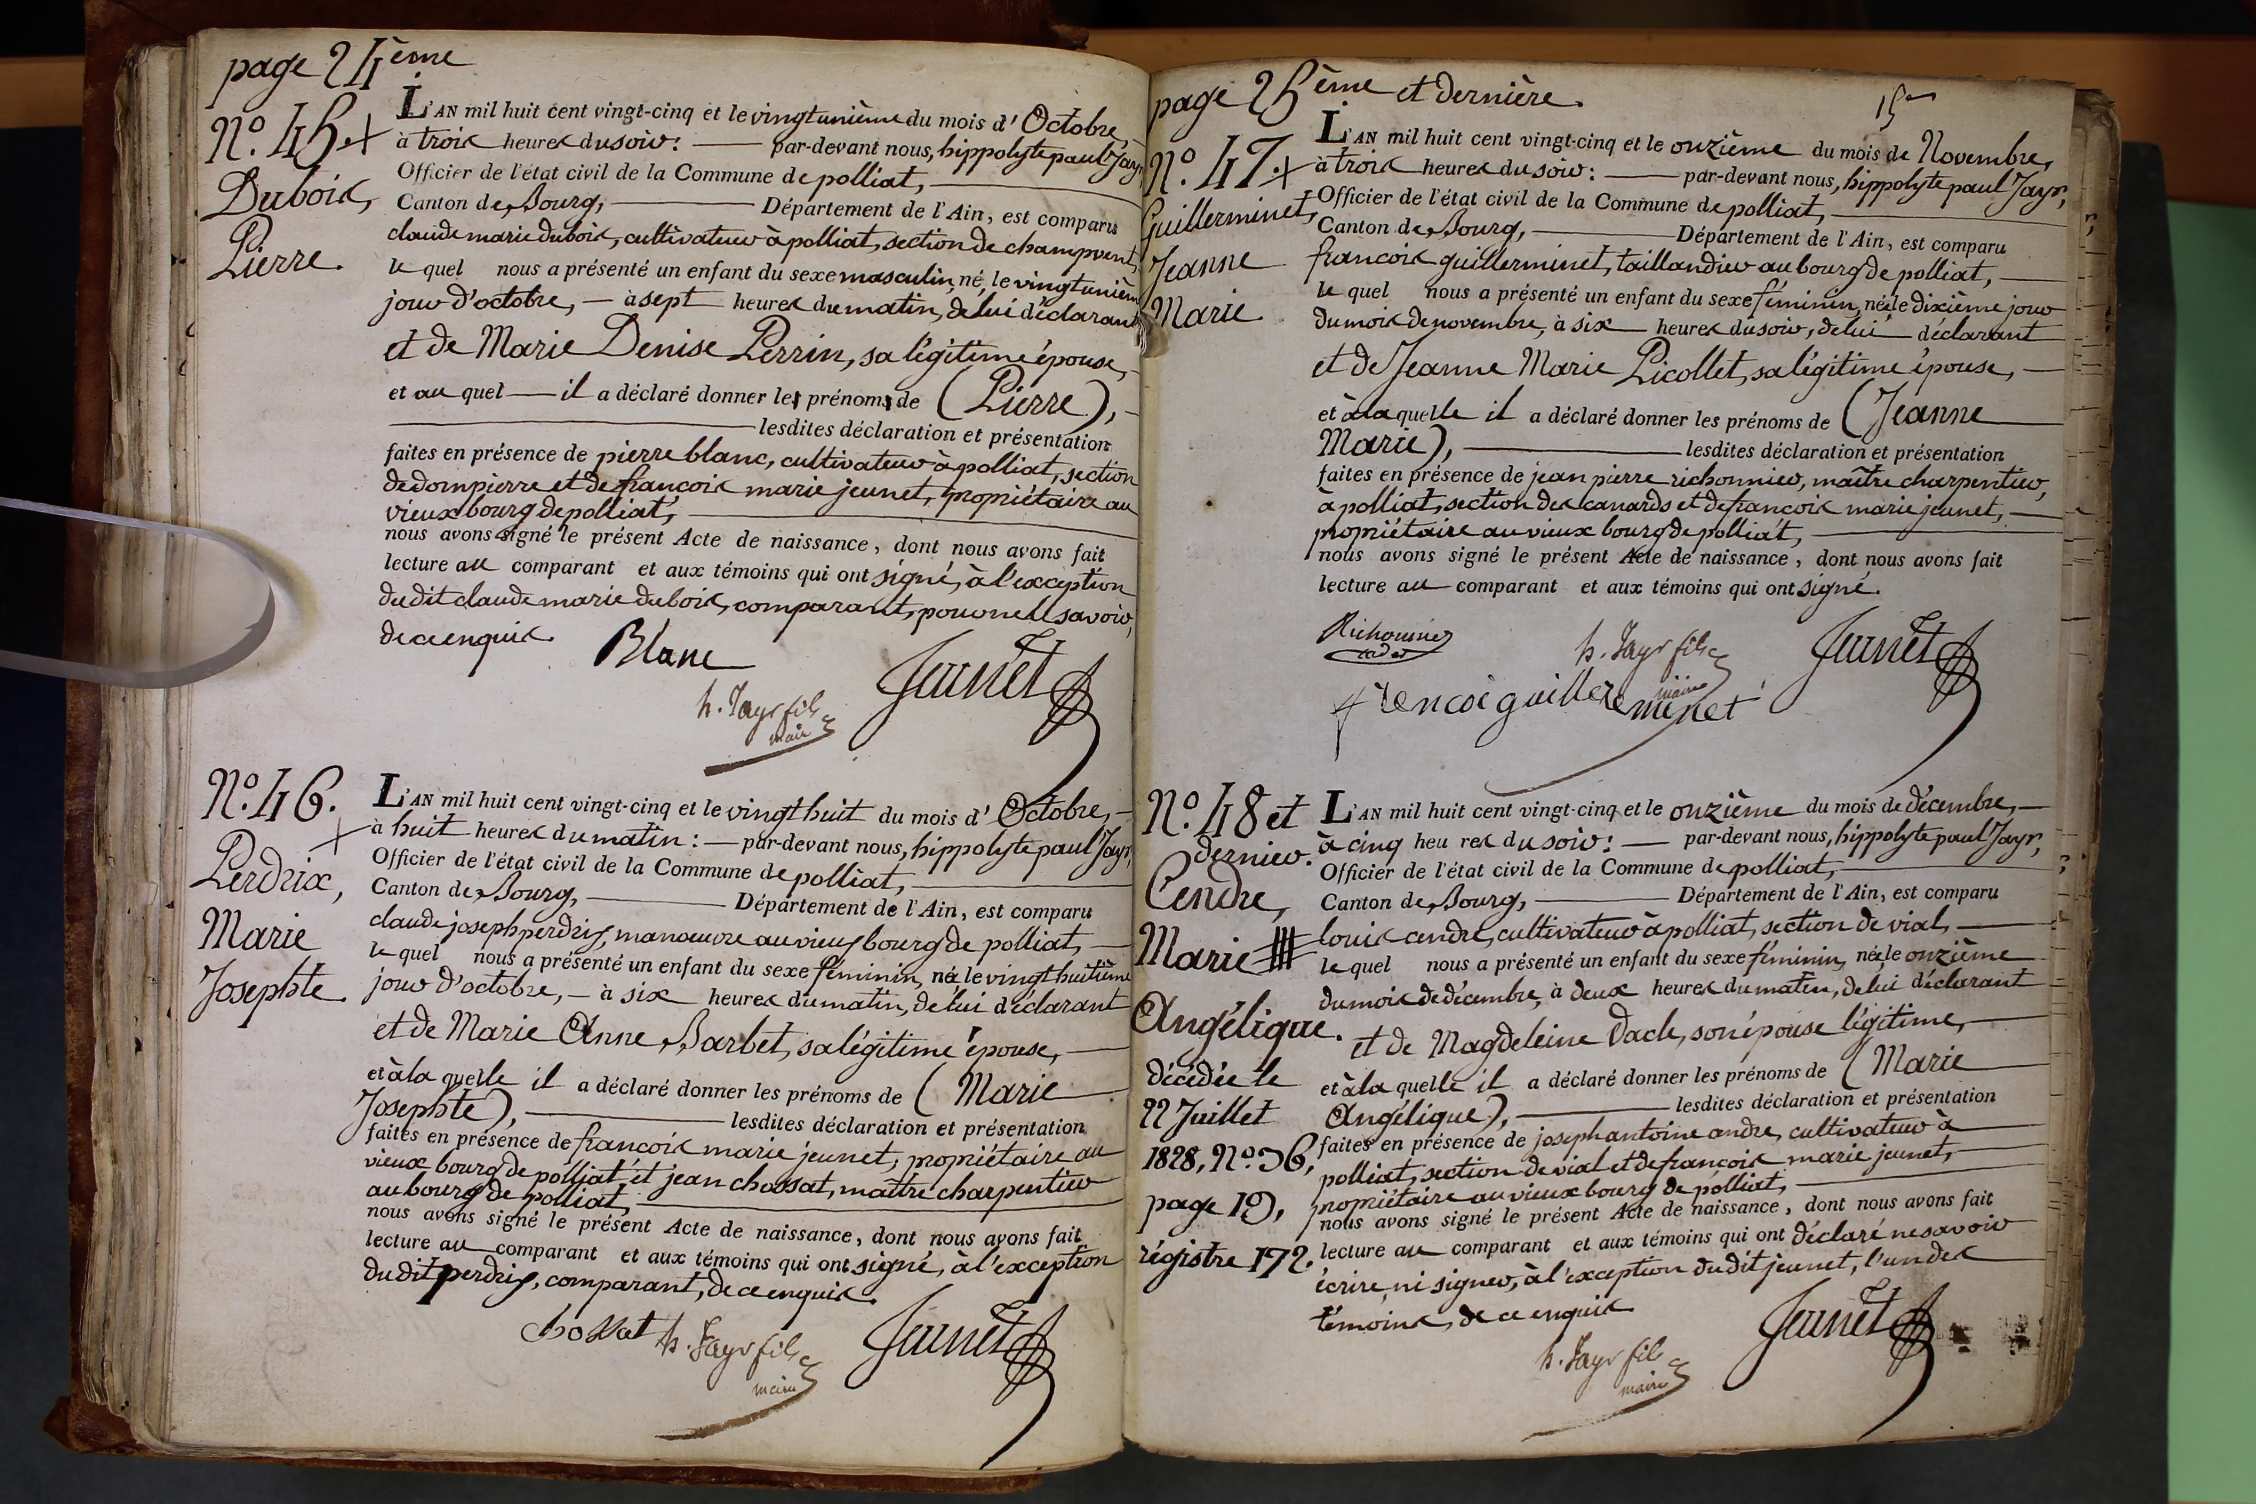 page 24ème
N.º 45. +
Dubois,
Pierre.
L'AN mil huit cent vingt-cinq et le vingtunième du mois d'Octobre,
à trois heures du soir: — par-devant nous, hippolyte paul Jayr,
Officier de l'état civil de la Commune de polliat,
Canton de Bourg, — Département de l'Ain, est comparu
claude marie dubois, cultivateur à polliat, section de champvent,
le quel nous a présenté un enfant du sexe masculin, né, le vingtunième
jour d'octobre, — à sept heures du matin, de lui déclarant
et de Marie Denise Perrin, sa légitime épouse,
et au quel — il a déclaré donner les prénoms de (Pierre),
lesdites déclaration et présentation
faites en présence de pierre blanc, cultivateur à polliat, section
de dompierre et de francois marie jeunet, propriétaire au
vieux bourg de polliat,
nous avons signé le présent Acte de naissance, dont nous avons fait
lecture au comparant et aux témoins qui ont signé, à l'exception
du dit claude marie dubois, comparant, pour ne le savoir,
de ce enquis.
Blanc
h. Jayr fils
maire
Jeunet
N.º 46.
+
Perdrix,
Marie
Josephte.
L'AN mil huit cent vingt-cinq et le vingt huit du mois d'Octobre,
à huit heures du matin: — par-devant nous, hippolyte paul Jayr,
Officier de l'état civil de la Commune de polliat,
Canton de Bourg, — Département de l'Ain, est comparu
claude joseph perdrix, manœuvre au vieux bourg de polliat,
le quel nous a présenté un enfant du sexe féminin, née le vingt huitième
jour d'octobre, — à six heures du matin, de lui déclarant
et de Marie Anne Barbet, sa légitime épouse,
et à la quelle il a déclaré donner les prénoms de (Marie
Josephte),
lesdites déclaration et présentation
faites en présence de francois marie jeunet, propriétaire au
vieux bourg de polliat et jean chossat, maître charpentier
au bourg de polliat,
nous avons signé le présent Acte de naissance, dont nous avons fait
lecture au comparant et aux témoins qui ont signé, à l'exception
du dit perdrix, comparant, de ce enquis.
chossat
h. Jayr fils
maire
Jeunet
page 25ème et dernière.
N.º 47. +
Guillerminet,
Jeanne
Marie.
L'AN mil huit cent vingt-cinq et le onzième du mois de Novembre,
à trois heures du soir: — par-devant nous, hippolyte paul Jayr,
Officier de l'état civil de la Commune de polliat,
Canton de Bourg, — Département de l'Ain, est comparu
francois guillerminet, taillandier au bourg de polliat,
le quel nous a présenté un enfant du sexe féminin, née le dixième jour
du mois de novembre, à six heures du soir, de lui déclarant
et de Jeanne Marie Picollet, sa légitime épouse,
et à la quelle il a déclaré donner les prénoms de (Jeanne
Marie),
lesdites déclaration et présentation
faites en présence de jean pierre richonnier, maître charpentier,
à polliat, section des canards et de francois marie jeunet,
propriétaire au vieux bourg de polliat,
nous avons signé le présent Acte de naissance, dont nous avons fait
lecture au comparant et aux témoins qui ont signé.
Richonnier
h. Jayr fils
maire
Jeunet
N.º 48 et
dernier.
Cendre,
Marie
Angélique.
décédée le
22 Juillet
1828, N.º 36,
page 19,
régistre 172.
L'AN mil huit cent vingt-cinq et le onzième du mois de décembre,
à cinq heures du soir: — par-devant nous, hippolyte paul Jayr,
Officier de l'état civil de la Commune de polliat,
Canton de Bourg, — Département de l'Ain, est comparu
louis cendre, cultivateur à polliat, section de vial,
le quel nous a présenté un enfant du sexe féminin, née le onzième
du mois de décembre, à deux heures du matin, de lui déclarant
et de Magdeleine Dacle, son épouse légitime,
et à la quelle il a déclaré donner les prénoms de (Marie
Angélique),
lesdites déclaration et présentation
faites en présence de joseph antoine andre, cultivateur à
polliat, section de vial et de francois marie jeunet,
propriétaire au vieux bourg de polliat,
nous avons signé le présent Acte de naissance, dont nous avons fait
lecture au comparant et aux témoins qui ont déclaré ne savoir
écrire, ni signer, à l'exception du dit jeunet, l'un des
témoins, de ce enquis
h. Jayr fils
maire
Jeunet